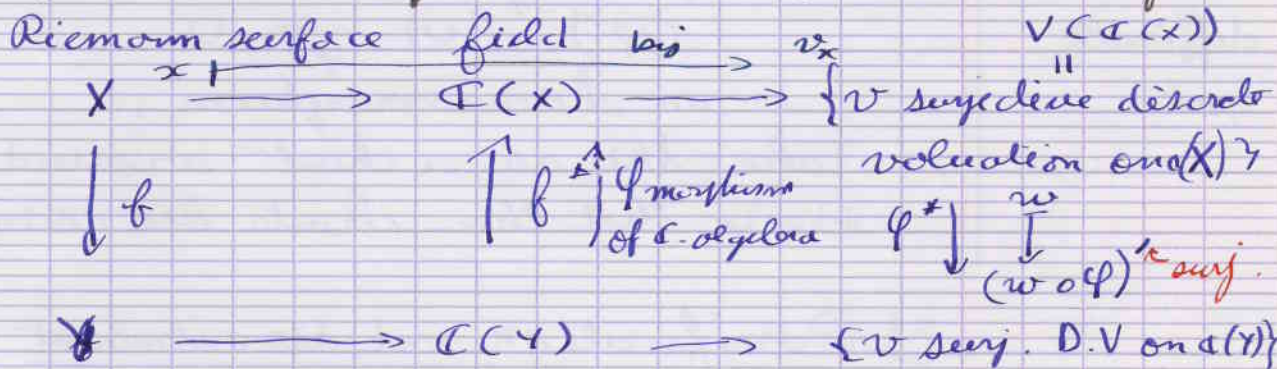 Riemann surface field bij v_x V(ℂ(X))
x ↦ =
X → ℂ(X) → {v surjective discrete
valuation on ℂ(X)}
↓ f ↑ f* ↑ φ morphism of ℂ-algebra φ* ↓ w ↦ (w∘φ)' ← surj.
Y → ℂ(Y) → {v surj. D.V on ℂ(Y)}